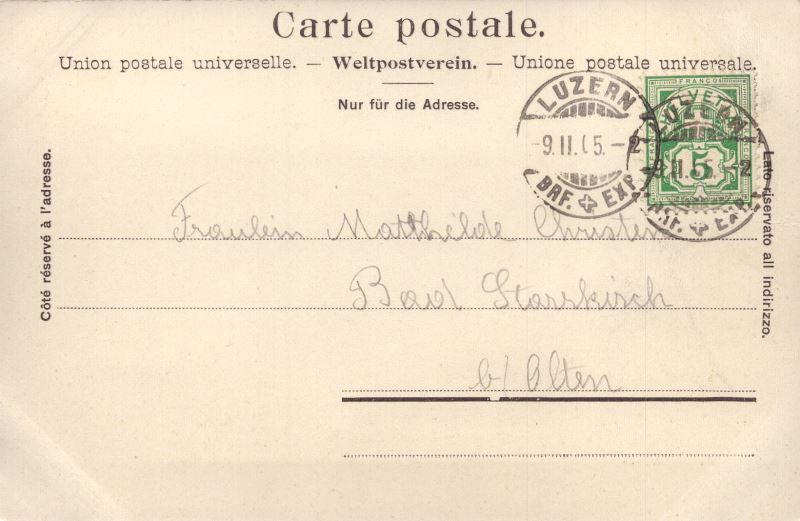 Carte postale.
Union postale universelle. — Weltpostverein. — Unione postale universale.
Nur für die Adresse.
Côté réservé à l'adresse.
Lato riservato all indirizzo.
LUZERN
-9.II.05.-2
BRF. EXP.
FRANCO
HELVETIA
5
LUZERN
-9.II.05.-2
BRF. EXP.
Fräulein Matthilde Christen
Bad
b/ Olten